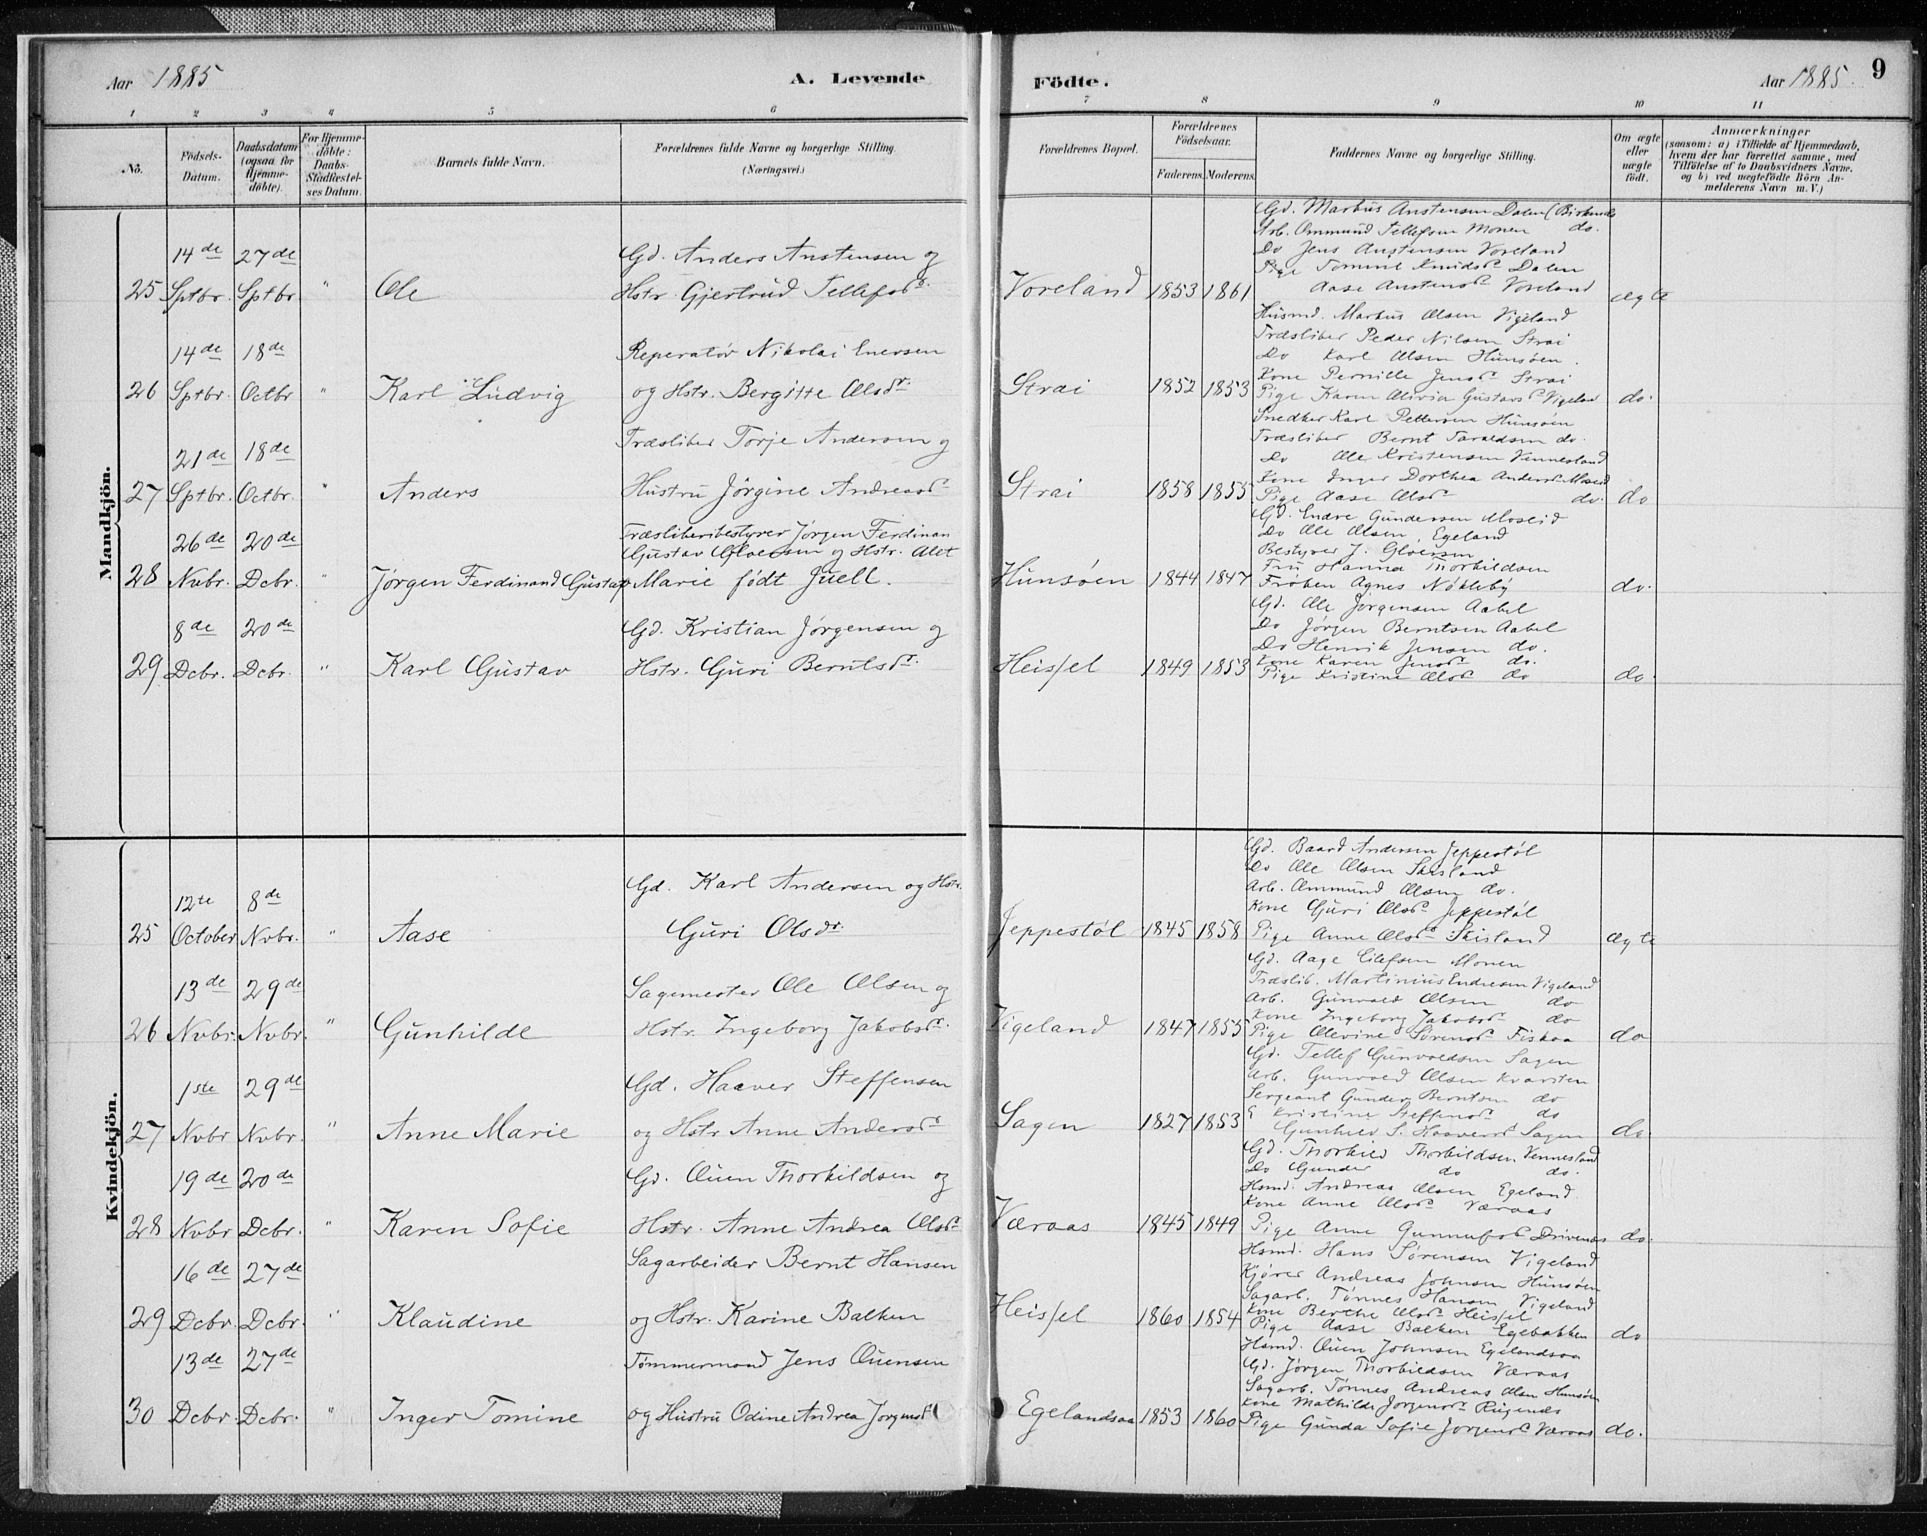 Aar 1885
A. Levende
Födte.
Aar 1885.
9
1 2 3 4 5 6 7 8 9 10 11
No.
Födsels-Datum.
Daabsdatum (ogsaa for Hjemme-döbte).
For Hjemme-döbte: Daabs-Stadfæstel-ses Datum.
Barnets fulde Navn.
Forældrenes fulde Navne og borgerlige Stilling.
(Næringsvei.)
Forældrenes Bopæl.
Forældrenes Födselsaar.
Faderens. Moderens.
Faddernes Navne og borgerlige Stilling.
Om ægte eller uægte födt.
Anmærkninger
(saasom: a) i Tilfælde af Hjemmedaab,
hvem der har forrettet samme, med
Tilföielse af to Daabsvidners Navne,
og b) ved uegtefödte Börn An-
melderens Navn m. V.)
Mandkjön.
25 14de Sptbr. 27de Sptbr. " Ole
Gd. Anders Anstensen og
Hstr. Gjertrud Tellefsd.
Voreland 1853 1861
Gd. Markus Anstensen Dalen
Arb. Ommund Tellefsen Monen do.
Do Jens Austensen Voreland
Pige Tomine Knudsd Dalen
Aase Austensd Voreland
ægte
26 14de Sptbr. 18de Octbr " Karl Ludvig
Reperatør Nikolai Enersen
og Hstr. Bergitte Olsdr.
Strai 1852 1853
Husmd. Markus Olsen Vigeland
Træsliber Peder Nilsen Strai
Do Karl Olsen Hunsøen.
Kone Pernille Jensd Strai
Pige Karen Olivia Gustavsd Vigeland
do.
27 21de Sptbr. 18de Octbr. " Anders
Træsliber Torje Andersen og
Hustru Jørgine Andreasd
Strai 1858 1855
Snedker Karl Pettersen Hunsøen
Træsliber Bernt Taraldsen do.
Do Ole Kristensen Vennesland
Kone Inger Dorthea Andersd Moseid
Pige Aase Olsd do.
do
28 26de Nvbr. 20de Dcbr. " Jørgen Ferdinand Gustav
Træsliberibestyrer Jørgen Ferdinan
Gustav Gløersen og Hstr. Alet
Marie født Juell.
Hunsøen 1844 1847
Gd. Endre Gundersen Moseid
Do Ole Olsen, Egeland
Bestyrer J. Gløersen
Fru Hanna Thorkildsen
Frøken Agnes Nökleby
do.
29 8de Dcbr. 20de Dcbr. " Karl Gustav
Gd. Kristian Jørgensen og
Hstr. Guri Berntsdr.
Heissel 1849 1853
Gd. Ole Jørgensen Aabel
Do Jørgen Berntsen Aabel
Do Henrik Jensen do.
Kone Karen Jensd do.
Pige Kristine Olsd do
do.
Kvindekjön.
25 12te October 8de Nvbr. " Aase
Gd. Karl Andersen og Hstr.
Guri Olsdr.
Jeppestøl 1845 1858
Gd. Baard Andersen Jeppestøl
Do Ole Olsen Skisland
Arb. Ommund Olsen do.
Kone Guri Olsd Jeppestøl
Pige Anne Olsd Skisland
ægte
26 13de Nvbr. 29de Nvbr. " Gunhilde
Sagemester Ole Olsen og
Hstr. Ingeborg Jakobsd.
Vigeland 1847 1855
Gd. Aage Eilefsen Monen
Træslib. Martinius Endresen Vigeland
Arb. Gunvald Olsen do
Kone Ingeborg Jakobsd do
Pige Olevine Sørensd Fiskaa
do
27 1ste Nvbr 29de Nvbr. " Anne Marie
Gd. Haaver Steffensen
og Hstr Anne Andersd
Sagen 1827 1853
Gd. Tellef Gunvaldsen Sagen
Arb. Gunvald Olsen Kvarsten
Sergeant Gunder Berntsen do
Kristine Steffensd do
Gunhild S. Haaversd Sagen
do.
28 19de Nvbr 20de Dcbr. " Karen Sofie
Gd. Ouen Thorkildsen og
Hstr. Anne Andrea Olsd
Væraas 1845 1849
Gd. Thorkild Thorkildsen Vennesland
Do Gunder do do.
Hsmd. Andreas Olsen Egeland
Kone Anne Olsd Væraas
Pige Anne Gunnufsd Drivenes
do.
29 16de Dcbr. 27de Dcbr. " Klaudine
Sagarbeider Bernt Hansen
og Hstr. Karine Balken
Heissel 1860 1854
Hsmd. Hans Sørensen Vigeland
Kjører Andreas Johnsen Hunsøen
Sagarb. Tønnes Hansen Vigeland
Kone Berthe Olsd Heissel
Pige Aase Balken Egebakken
do
30 13de Dcbr. 27de Dcbr. " Inger Tomine
Tømmermand Jens Ouensen
og Hustru Odine Andrea Jørgensd
Egelandsaa 1853 1860
Hsmd. Ouen Johnsen Egelandsaa
Gd. Jørgen Thorkildsen Væraas
Sagarb. Tønnes Andreas Olsen Hunsøen
Kone Mathilde Jørgensd Rugenes
Pige Gunda Sofie Jørgensd Væraas
do.